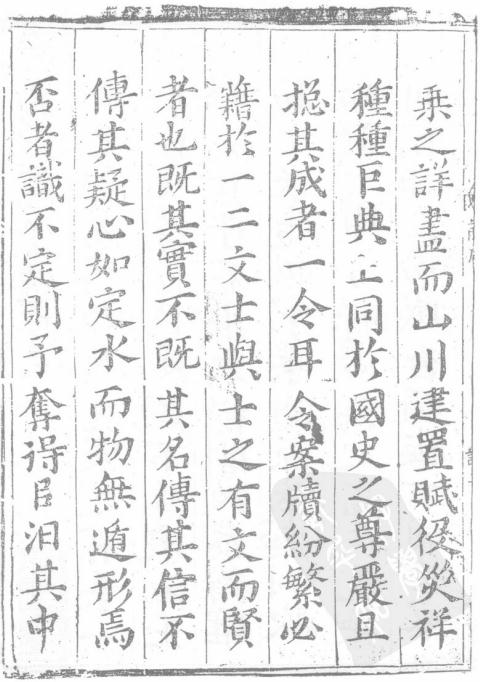 乗之詳盡而山川建置賦役災祥
種種巨典上同於國史之尊嚴且
揔其成者一令耳令案牘紛繁必
藉於一二文士與士之有文而賢
者也既其實不既其名傳其信不
傳其疑心如定水而物無遁形焉
否者識不定則予奪得以汩其中